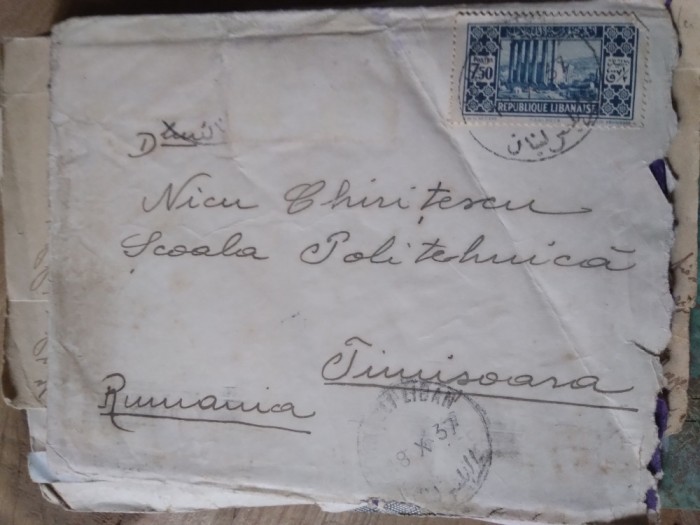 7.50
REPUBLIQUE LIBANAISE
لبنان
D
Nicu Chirițescu
Școala Politehnică
Timisoara
Rumania
LIBAN
8 X 37